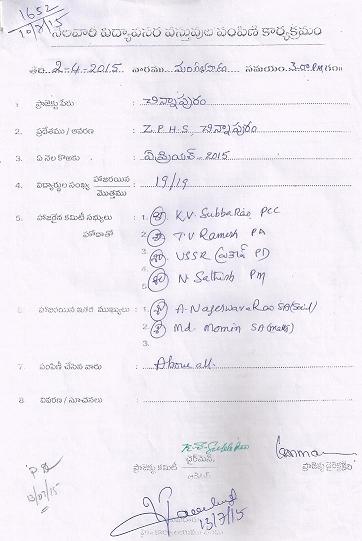 1652
10/7/15
నెలవారి విద్యావసర వస్తువుల పంపిణి కార్యక్రమం
తేది. 2-4-2015 వారము మంగళవారం సమయం 3-00 PM గం॥
1. ప్రాజెక్టు పేరు : చిన్నాపురం
2. ప్రదేశము / ఆవరణ : Z.P.H.S, చిన్నాపురం
3. ఏ నెల కొఱకు : ఏప్రియల్-2015
4. విద్యార్థుల సంఖ్య హాజరయిన మొత్తము : 19/19
5. హాజరైన కమిటీ సభ్యులు హోదాతో : 1. శ్రీ K.V. Subba Rao PCC
2. శ్రీ T.V Ramesh PA
3. శ్రీ VSSR ప్రకాష్ PD
4. శ్రీ N. Sathish PM
5.
6. హాజరయిన ఇతర ముఖ్యులు : 1. శ్రీ A. Nageswara Rao SA (Social)
2. శ్రీ Md. Momin SA (maths)
3.
7. పంపిణీ చేసిన వారు : Above all.
8. వివరణ / సూచనలు :
ప్రాజెక్టు కమిటీ చైర్మెన్. ప్రాజెక్టు డైరెక్టర్
13/7/15